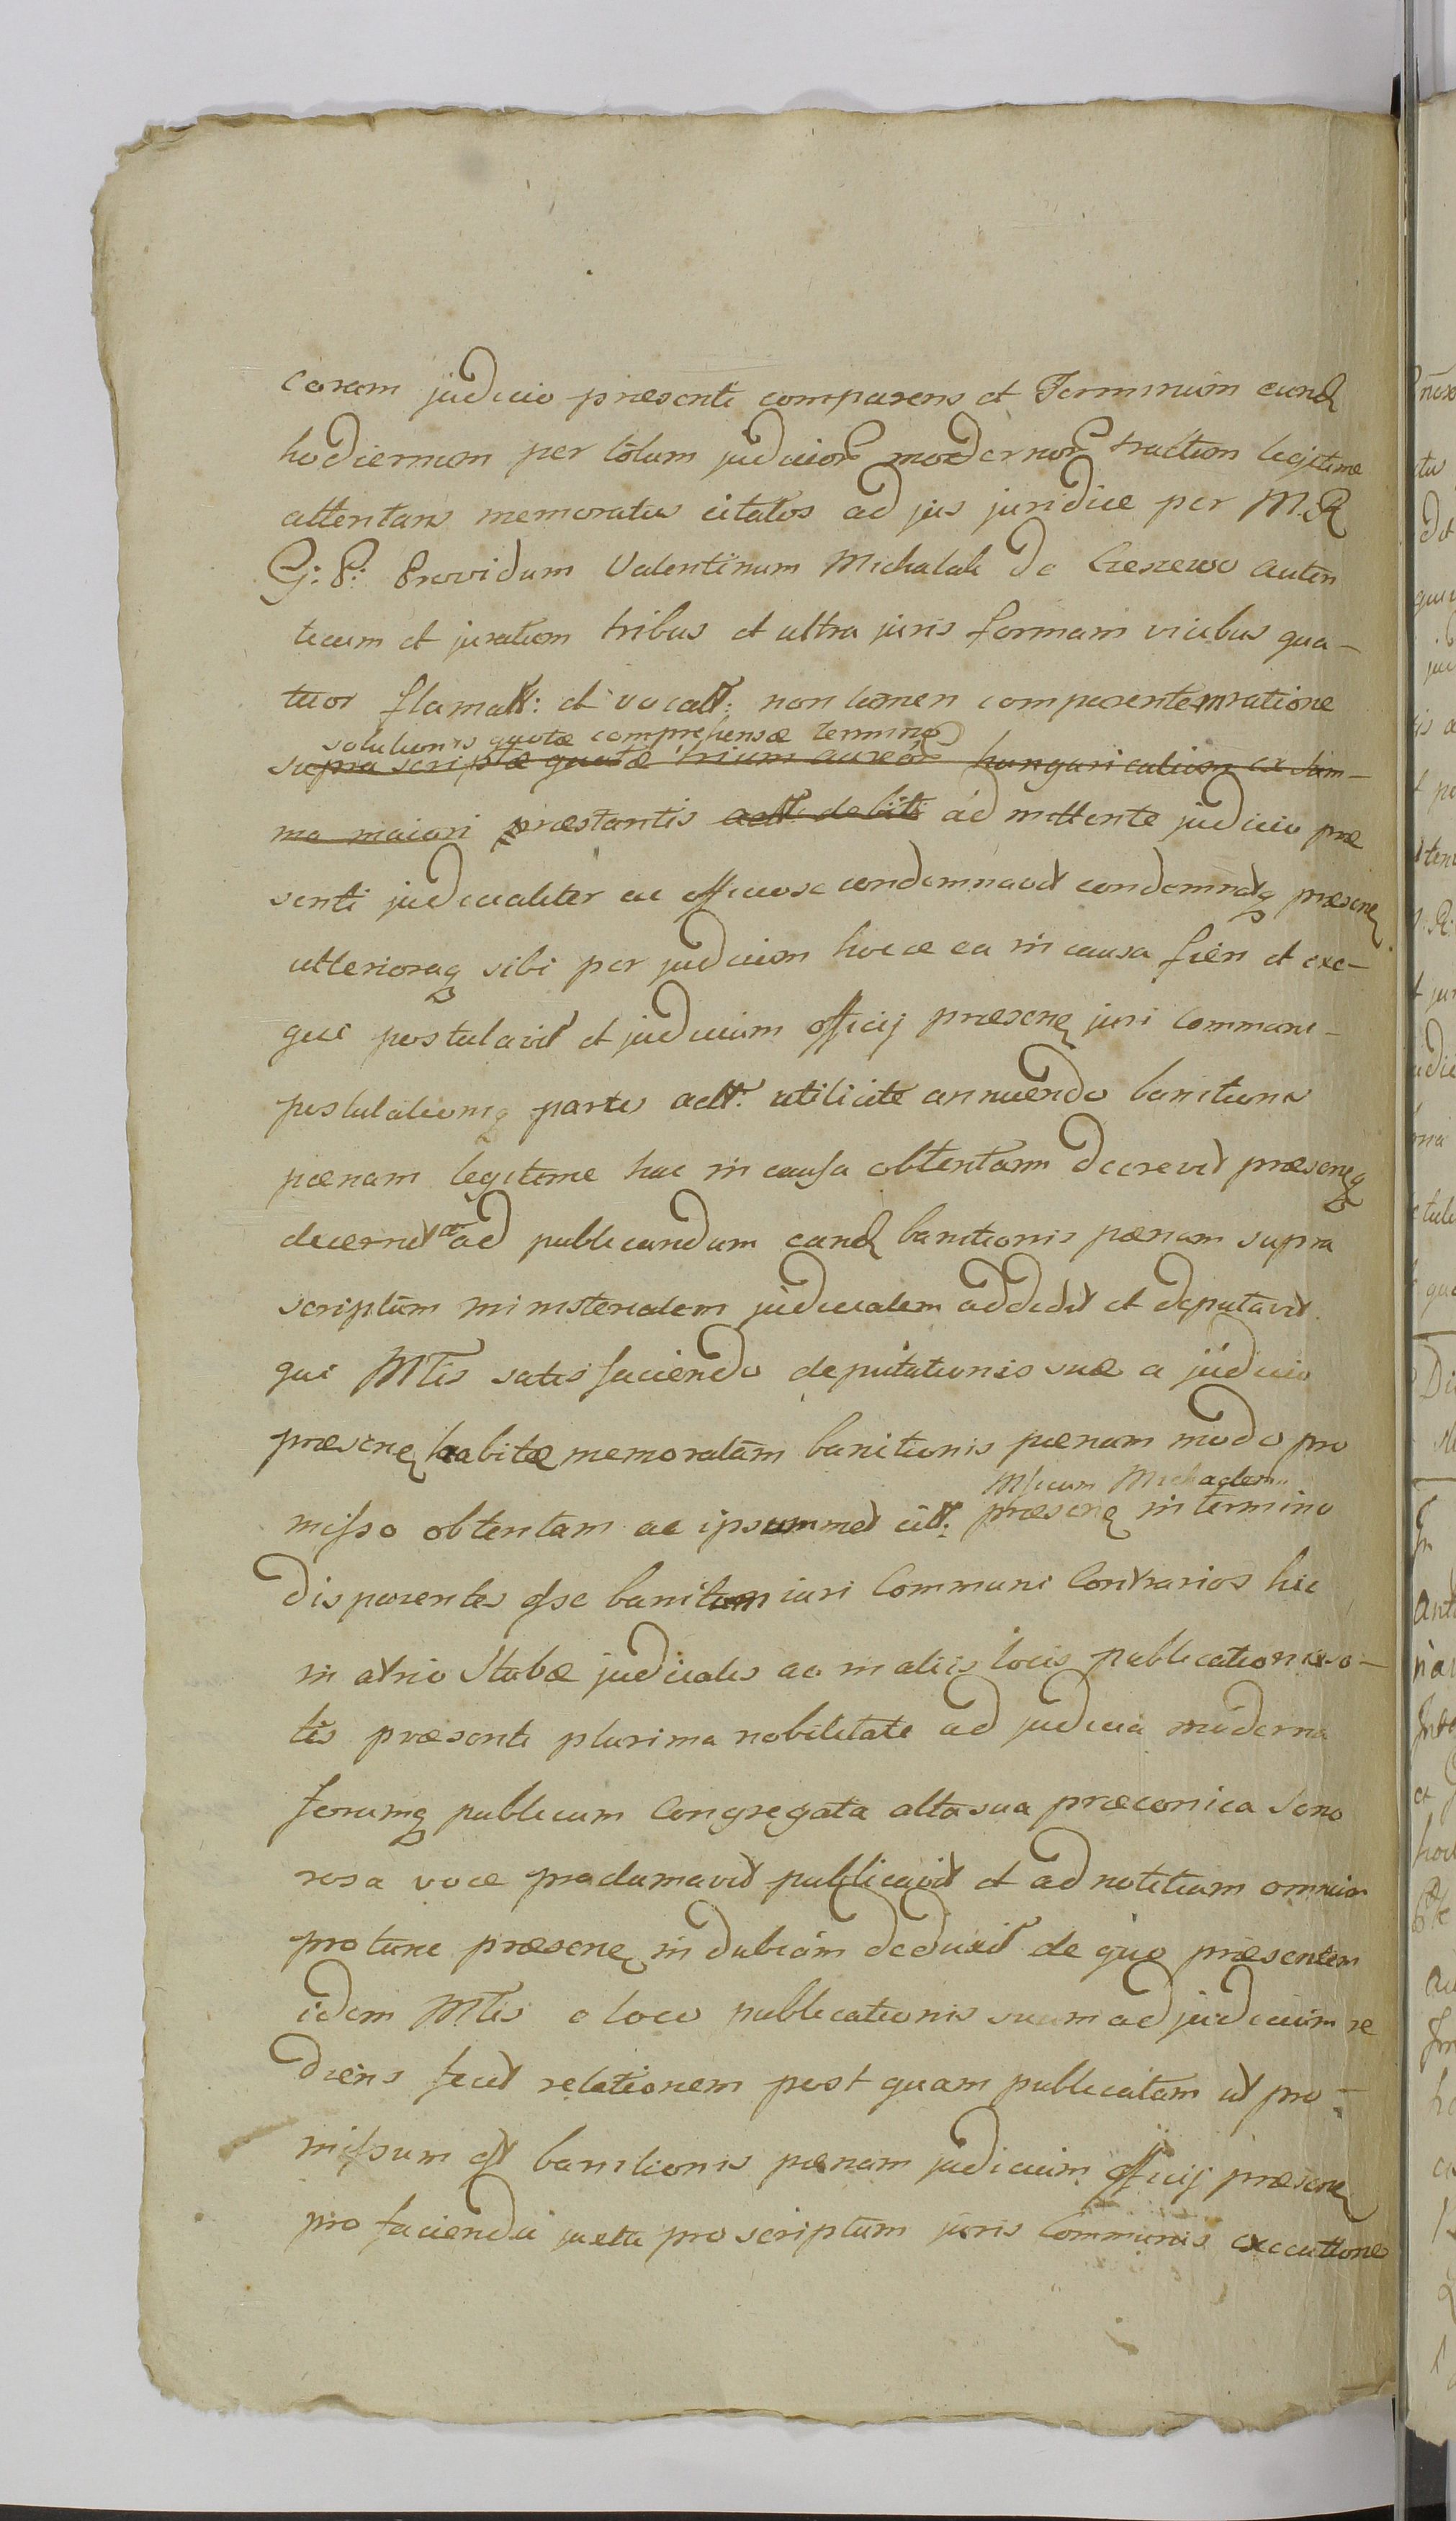 coram judicio præsenti comparens et Terminum eund
hodiernum per totum judicior modernor tractum legitime
attentans memoratos citatos ad jus juridice per M. R
G: P: Providum Valentinum Michalak de auten
ticum et juratum tribus et ultra juris formam vicibus qua-
tuor flamatt: et vocatt: non tamen comparentem ratione
solutionis quotæ comprehensæ termino
supra scriptæ quotæ trium aureor hungaricalium ex sum-
ma maiori præstantis actt: debiti admittente judicio præ
senti judicialiter ac officiose condemnavit condemnatq præsen
ulterioraq sibi per judicium hocce ea in causa fieri et exe-
qui postulavit et judicium officij præsen juri Communi-
postulationiq partis actt: utilicite annuendo banitionis
pœnam legitime hac in causa obtentam decrevit præsenq
decernit ac ad publicandum eand banitionis pœnam supra
scriptum ministerialem judicialem addidit et deputavit
qui Mtis satisfaciendo deputationis suæ a judicio
præsen habitæ memoratam banitionis pœnam modo præ
Msicum Michaelem
misso obtentam ac ipsummet citt: præsen in termino
disparentes esse banitum iuri Communi Contrarios hic
in atrio Stubæ judicialis ac in aliis locis publicationis so-
lis præsente plurima nobilitate ad judicia moderna
forumq publicum Congregata alta sua præconica sono
rosa voce proclamavit publicavit et ad notitiam omnium
pro tunc præsen in dubiam deduxit de quo præsentem
idem Mtis e loco publicationis suum ad judicium re
diens fecit relationem post quam publicatam ut præ-
missum est banitionis pœnam judicium officij præsen
pro facienda juxta præscriptum juris Communis executione